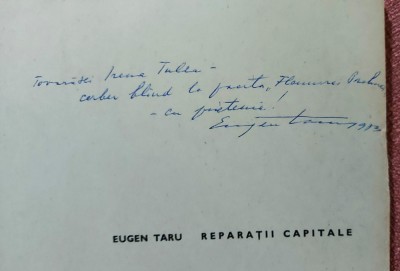 Tovarășei Irene Tulea -
cerber blînd la poarta „Flamura
- cu prietenie!
Eugen Taru
EUGEN TARU REPARAȚII CAPITALE